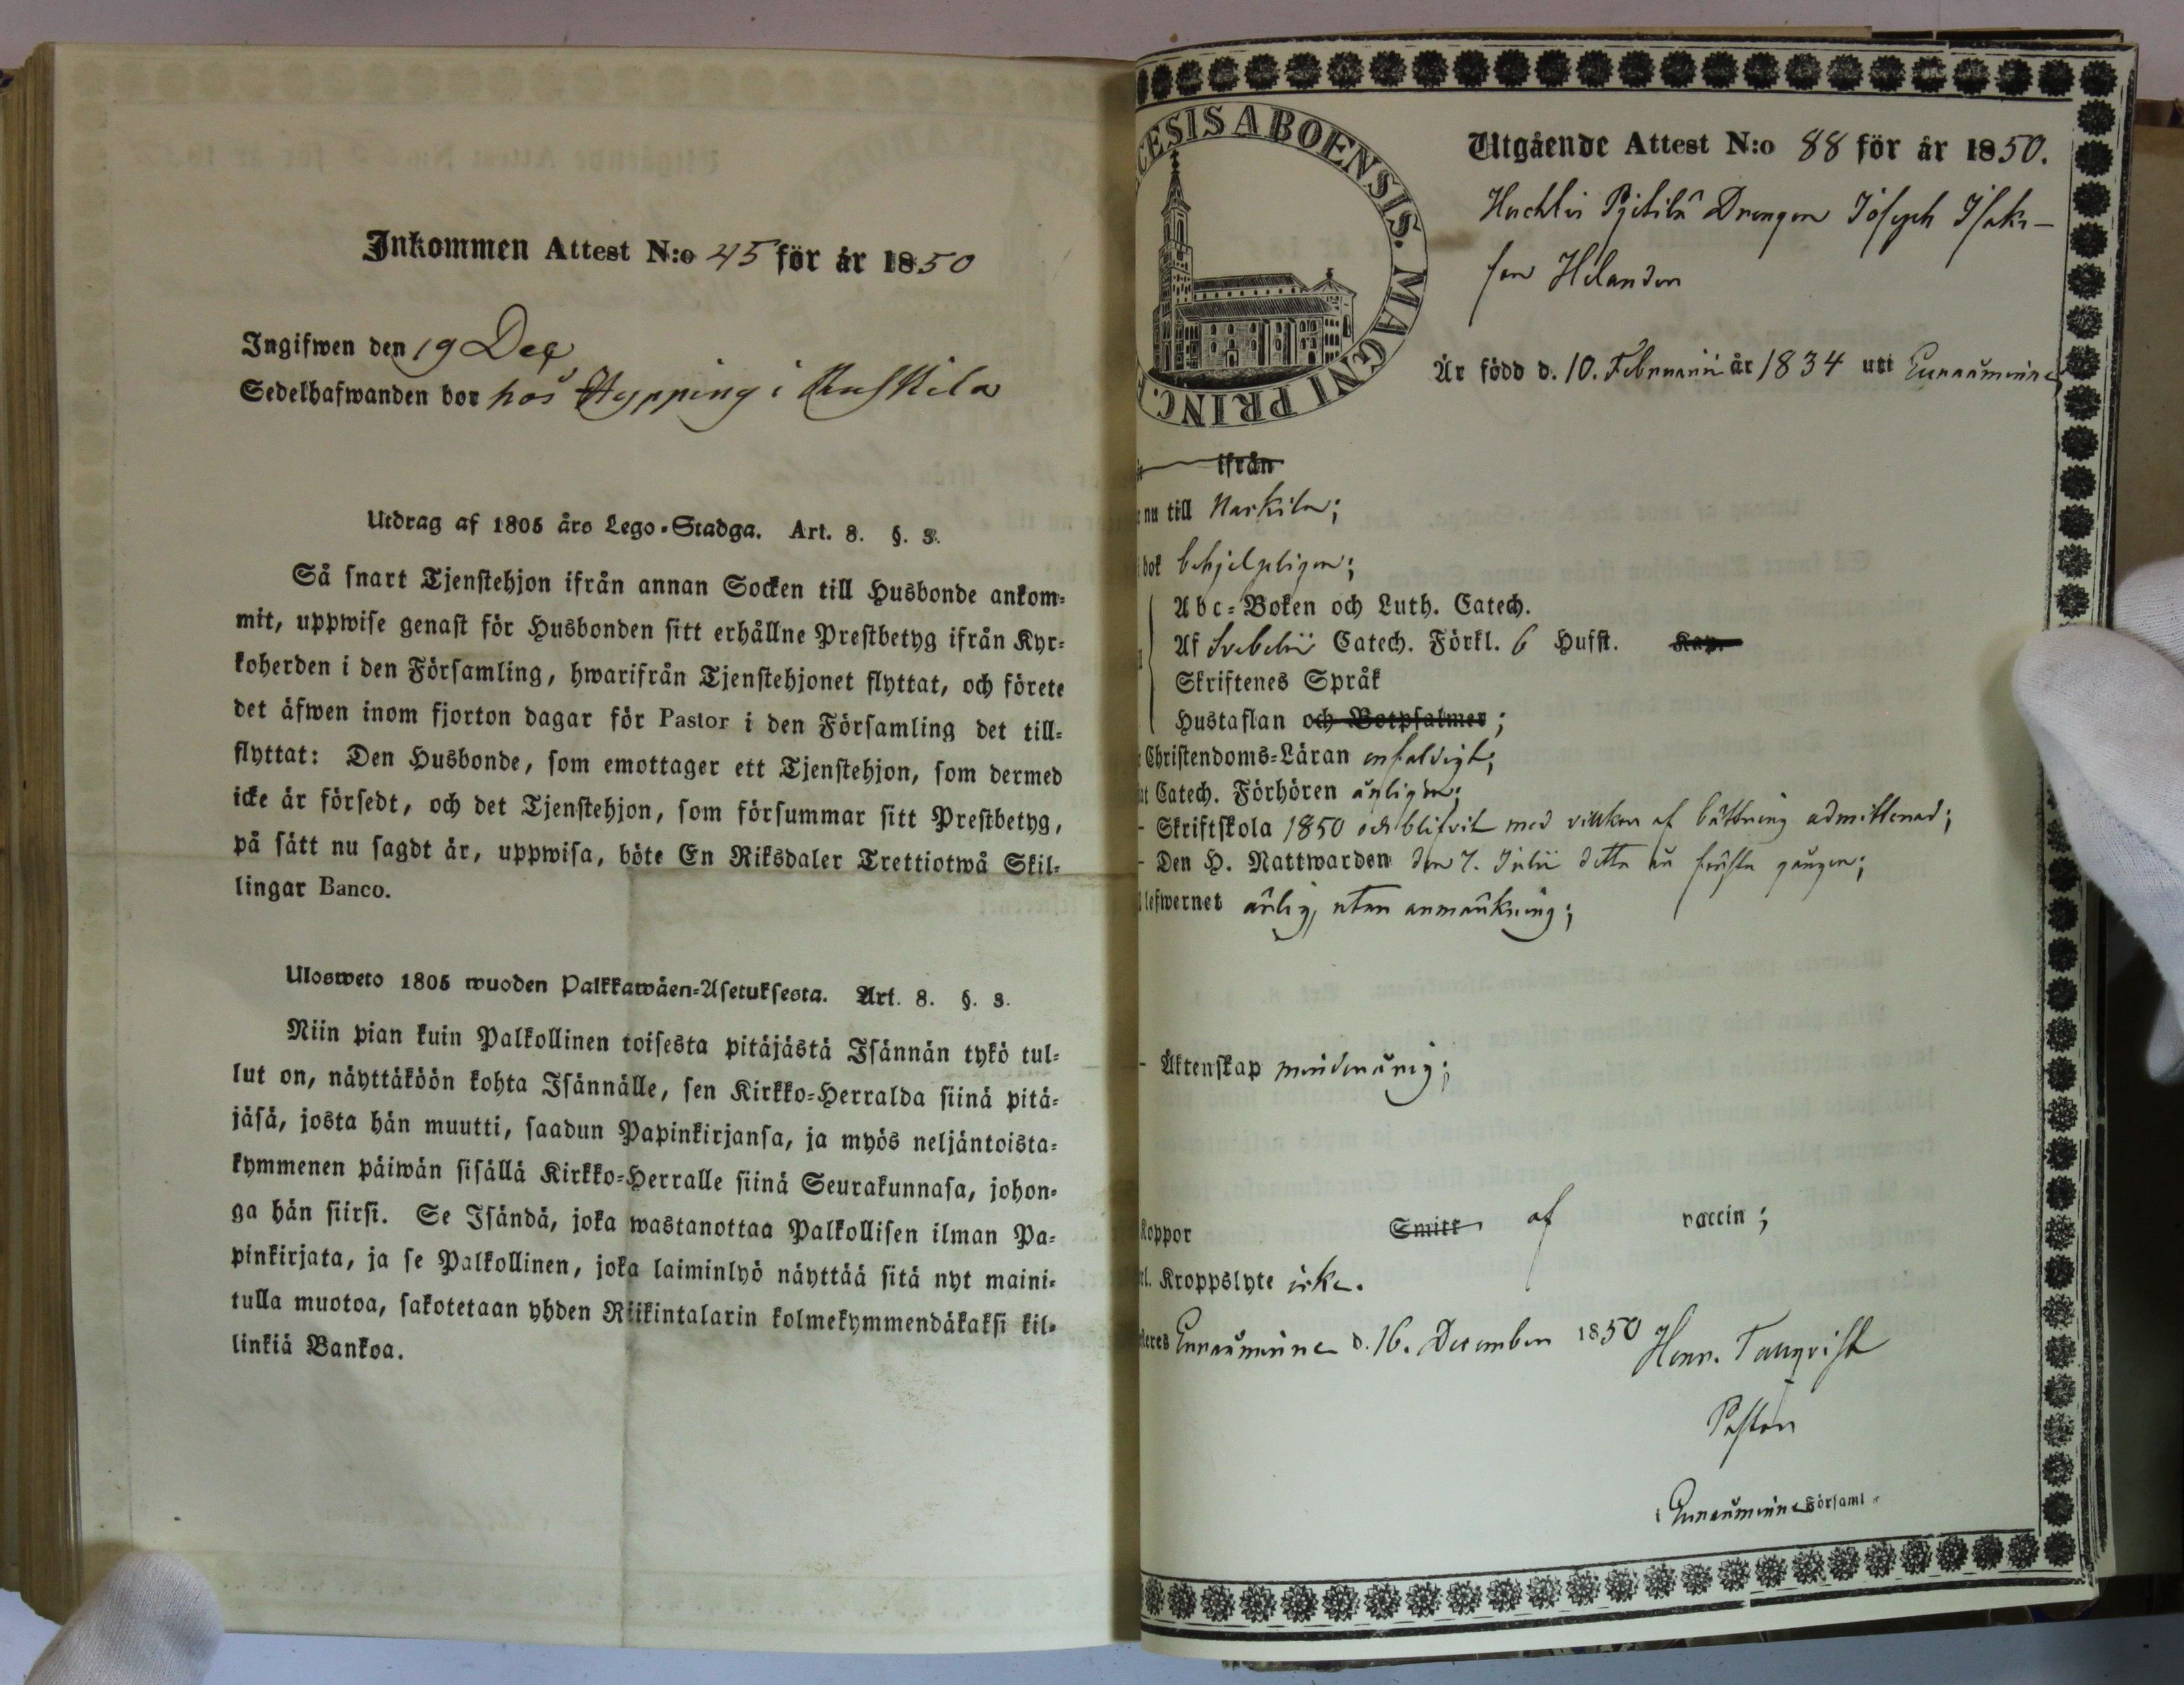 Inkommen Attest N:o 45 för år 1850
Ingifwen den 19 Dec
Sedelhafwanden bor hos Hypping i
Utdrag af 1805 års Lego-Stadga. Art. 8. §. 3.
Så snart Tjenstehjon ifrån annan Socken till Husbonde ankom-
mit, uppwise genast för Husbonden sitt erhållne Prestbetyg ifrån Kyr-
koherden i den Församling, hwarifrån Tjenstehjonet flyttat, och förete
det äfwen inom fjorton dagar för Pastor i den Församling det till-
flyttat: Den Husbonde, som emottager ett Tjenstehjon, som dermed
icke är försedt, och det Tjenstehjon, som försummar sitt Prestbetyg,
på sätt nu sagdt är, uppwisa, böte En Riksdaler Trettiotwå Skil-
lingar Banco.
Ulosweto 1805 wuoden Palkkawäen-Asetuksesta. Art. 8. §. 3.
Niin pian kuin Palkollinen toisesta pitäjästä Isännän tykö tul-
lut on, näyttäköön kohta Isännälle, sen Kirkko-Herralda siinä pitä-
jäsä, josta hän muutti, saadun Papinkirjansa, ja myös neljäntoista-
kymmenen päiwän sisällä Kirkko-Herralle siinä Seurakunnasa, johon-
ga hän siirsi. Se Isändä, joka wastanottaa Palkollisen ilman Pa-
pinkirjata, ja se Palkollinen, joka laiminlyö näyttää sitä nyt maini-
tulla muotoa, sakotetaan yhden Riikintalarin kolmekymmendäkaksi kil-
linkiä Bankoa.
CESIS ABOENSIS. MAGNI PRINC.
Utgående Attest N:o 88 för år 1850.
Drengen Joseph Isaks-
son Helander
Är född d. 10. Februarii år 1834 uti Euraåminne
ifrån
nu till Naskila;
bok behjelpligen;
Abc-Boken och Luth. Catech.
Af Svebelii Catech. Förkl. 6 Hufst. Kap.
Skriftenes Språk
Hustaflan och Botpsalmer;
Christendoms-Läran enfaldigt;
Catech. Förhören årligen;
Skriftskola 1850 och blifvit med villkor af bättring admitterad;
Den H. Nattwarden den 7. Julii detta år första gången;
lefwernet ärlig, utan anmärkning;
Äktenskap minderårig;
koppor Smitt af vaccin;
Kroppslyte icke.
Euraåminne d. 16. December 1850 Henr. Tallqvist
Pastor
i Euraåminne Församl